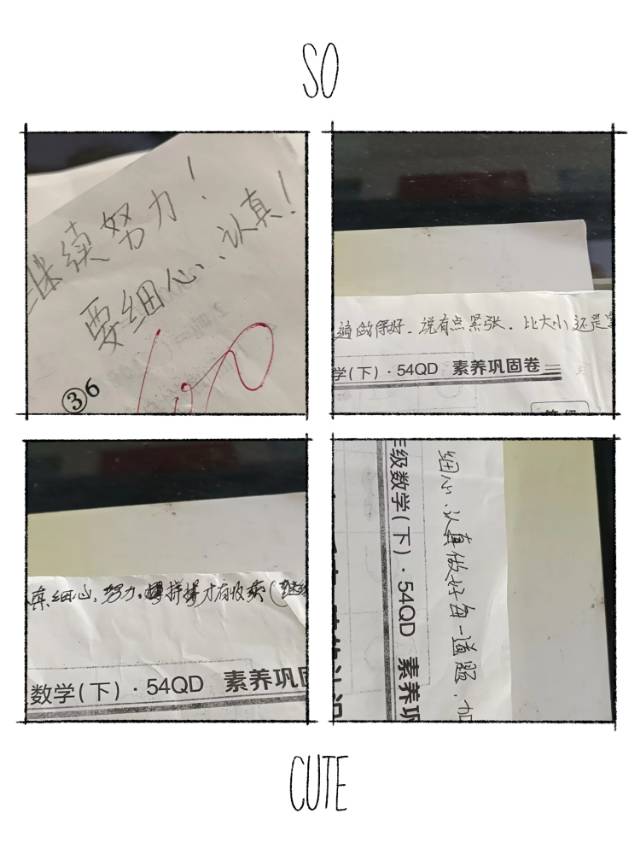 SO
继续努力！
要细心、认真！
100
③6
遍做得好．说有点紧张．比大小还是
学(下)·54QD 素养巩固卷
细心、努力．
数学(下)·54QD 素养巩固
细心、认真做好每一道题．加
年级数学(下)·54QD 素养巩
CUTE